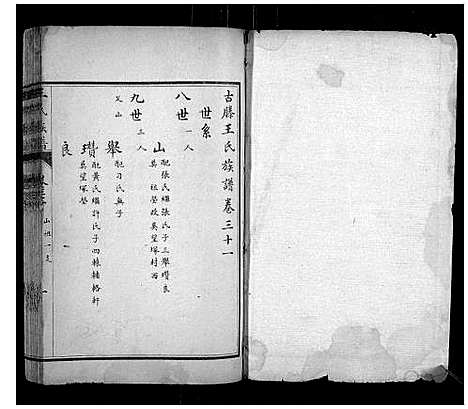 古滕王氏族譜卷三十一
世系
八世 一人
山 配張氏繼張氏子三舉瓚良
葬祖塋改葬望塚村西
九世 三人
父山
舉 配刁氏無子
瓚 配黃氏繼許氏子四棟輔輅軒
葬望塚塋
良
王氏族譜
山祖一支
一